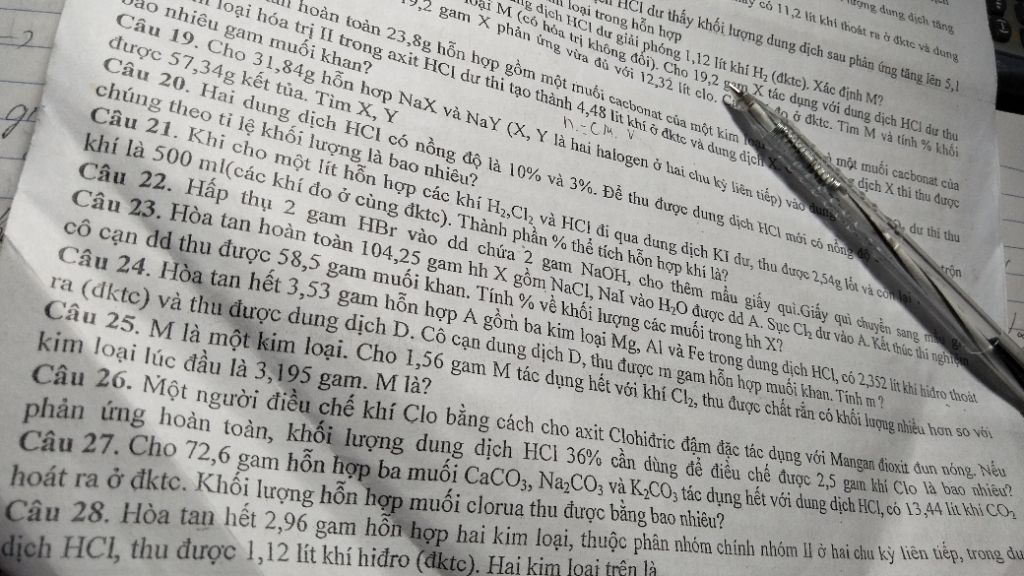 ượng dung dịch tăng
ấy có 11,2 lít khí thoát ra ở đktc và dung
HCl dư thấy khối lượng dung dịch sau phản ứng tăng lên 5,1
loại trong hỗn hợp
dịch HCl dư giải phóng 1,12 lít khí H₂ (đktc). Xác định M?
loại M (có hóa trị không đổi). Cho 19,2 gam X tác dụng với dung dịch HCl dư thu
19,2 gam X phản ứng vừa đủ với 12,32 lít clo. ở đktc. Tìm M và tính % khối
hoàn toàn 23,8g hỗn hợp gồm một muối cacbonat của một kim loại một muối cacbonat của
loại hóa trị II trong axit HCl dư thì tạo thành 4,48 lít khí ở đktc và dung dịch X dịch X thì thu được
bao nhiêu gam muối khan?
Câu 19. Cho 31,84g hỗn hợp NaX và NaY (X, Y là hai halogen ở hai chu kỳ liên tiếp) vào dung dư thì thu
được 57,34g kết tủa. Tìm X, Y
Câu 20. Hai dung dịch HCl có nồng độ là 10% và 3%. Để thu được dung dịch HCl mới có nồng độ trộn
chúng theo tỉ lệ khối lượng là bao nhiêu?
Câu 21. Khi cho một lít hỗn hợp các khí H₂,Cl₂ và HCl đi qua dung dịch KI dư, thu được 2,54g Iốt và còn lại
khí là 500 ml(các khí đo ở cùng đktc). Thành phần % thể tích hỗn hợp khí là?
Câu 22. Hấp thụ 2 gam HBr vào dd chứa 2 gam NaOH, cho thêm mẩu giấy quì.Giấy quì chuyển sang màu gì
Câu 23. Hòa tan hoàn toàn 104,25 gam hh X gồm NaCl, NaI vào H₂O được dd A. Sục Cl₂ dư vào A. Kết thúc thí nghiệm
cô cạn dd thu được 58,5 gam muối khan. Tính % về khối lượng các muối trong hh X?
Câu 24. Hòa tan hết 3,53 gam hỗn hợp A gồm ba kim loại Mg, Al và Fe trong dung dịch HCl, có 2,352 lít khí hiđro thoát
ra (đktc) và thu được dung dịch D. Cô cạn dung dịch D, thu được m gam hỗn hợp muối khan. Tính m ?
Câu 25. M là một kim loại. Cho 1,56 gam M tác dụng hết với khí Cl₂, thu được chất rắn có khối lượng nhiều hơn so với
kim loại lúc đầu là 3,195 gam. M là?
Câu 26. Một người điều chế khí Clo bằng cách cho axit Clohiđric đậm đặc tác dụng với Mangan đioxit đun nóng. Nếu
phản ứng hoàn toàn, khối lượng dung dịch HCl 36% cần dùng để điều chế được 2,5 gam khí Clo là bao nhiêu?
Câu 27. Cho 72,6 gam hỗn hợp ba muối CaCO₃, Na₂CO₃ và K₂CO₃ tác dụng hết với dung dịch HCl, có 13,44 lít khí CO₂
hoát ra ở đktc. Khối lượng hỗn hợp muối clorua thu được bằng bao nhiêu?
Câu 28. Hòa tan hết 2,96 gam hỗn hợp hai kim loại, thuộc phân nhóm chính nhóm II ở hai chu kỳ liên tiếp, trong du
dịch HCl, thu được 1,12 lít khí hiđro (đktc). Hai kim loại trên là